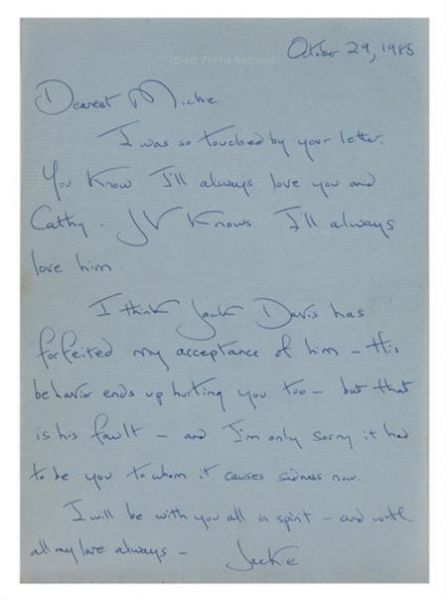 1040 FIFTH AVENUE
October 29, 1985
Dearest Miche
I was so touched by your letter.
You know I'll always love you and
Cathy. JV knows I'll always
love him
I think Jack Davis has
forfeited my acceptance of him – His
behavior ends up hurting you too – but that
is his fault – and I'm only sorry it had
to be you to whom it causes sadness now.
I will be with you all in spirit – and with
all my love always –
Jackie